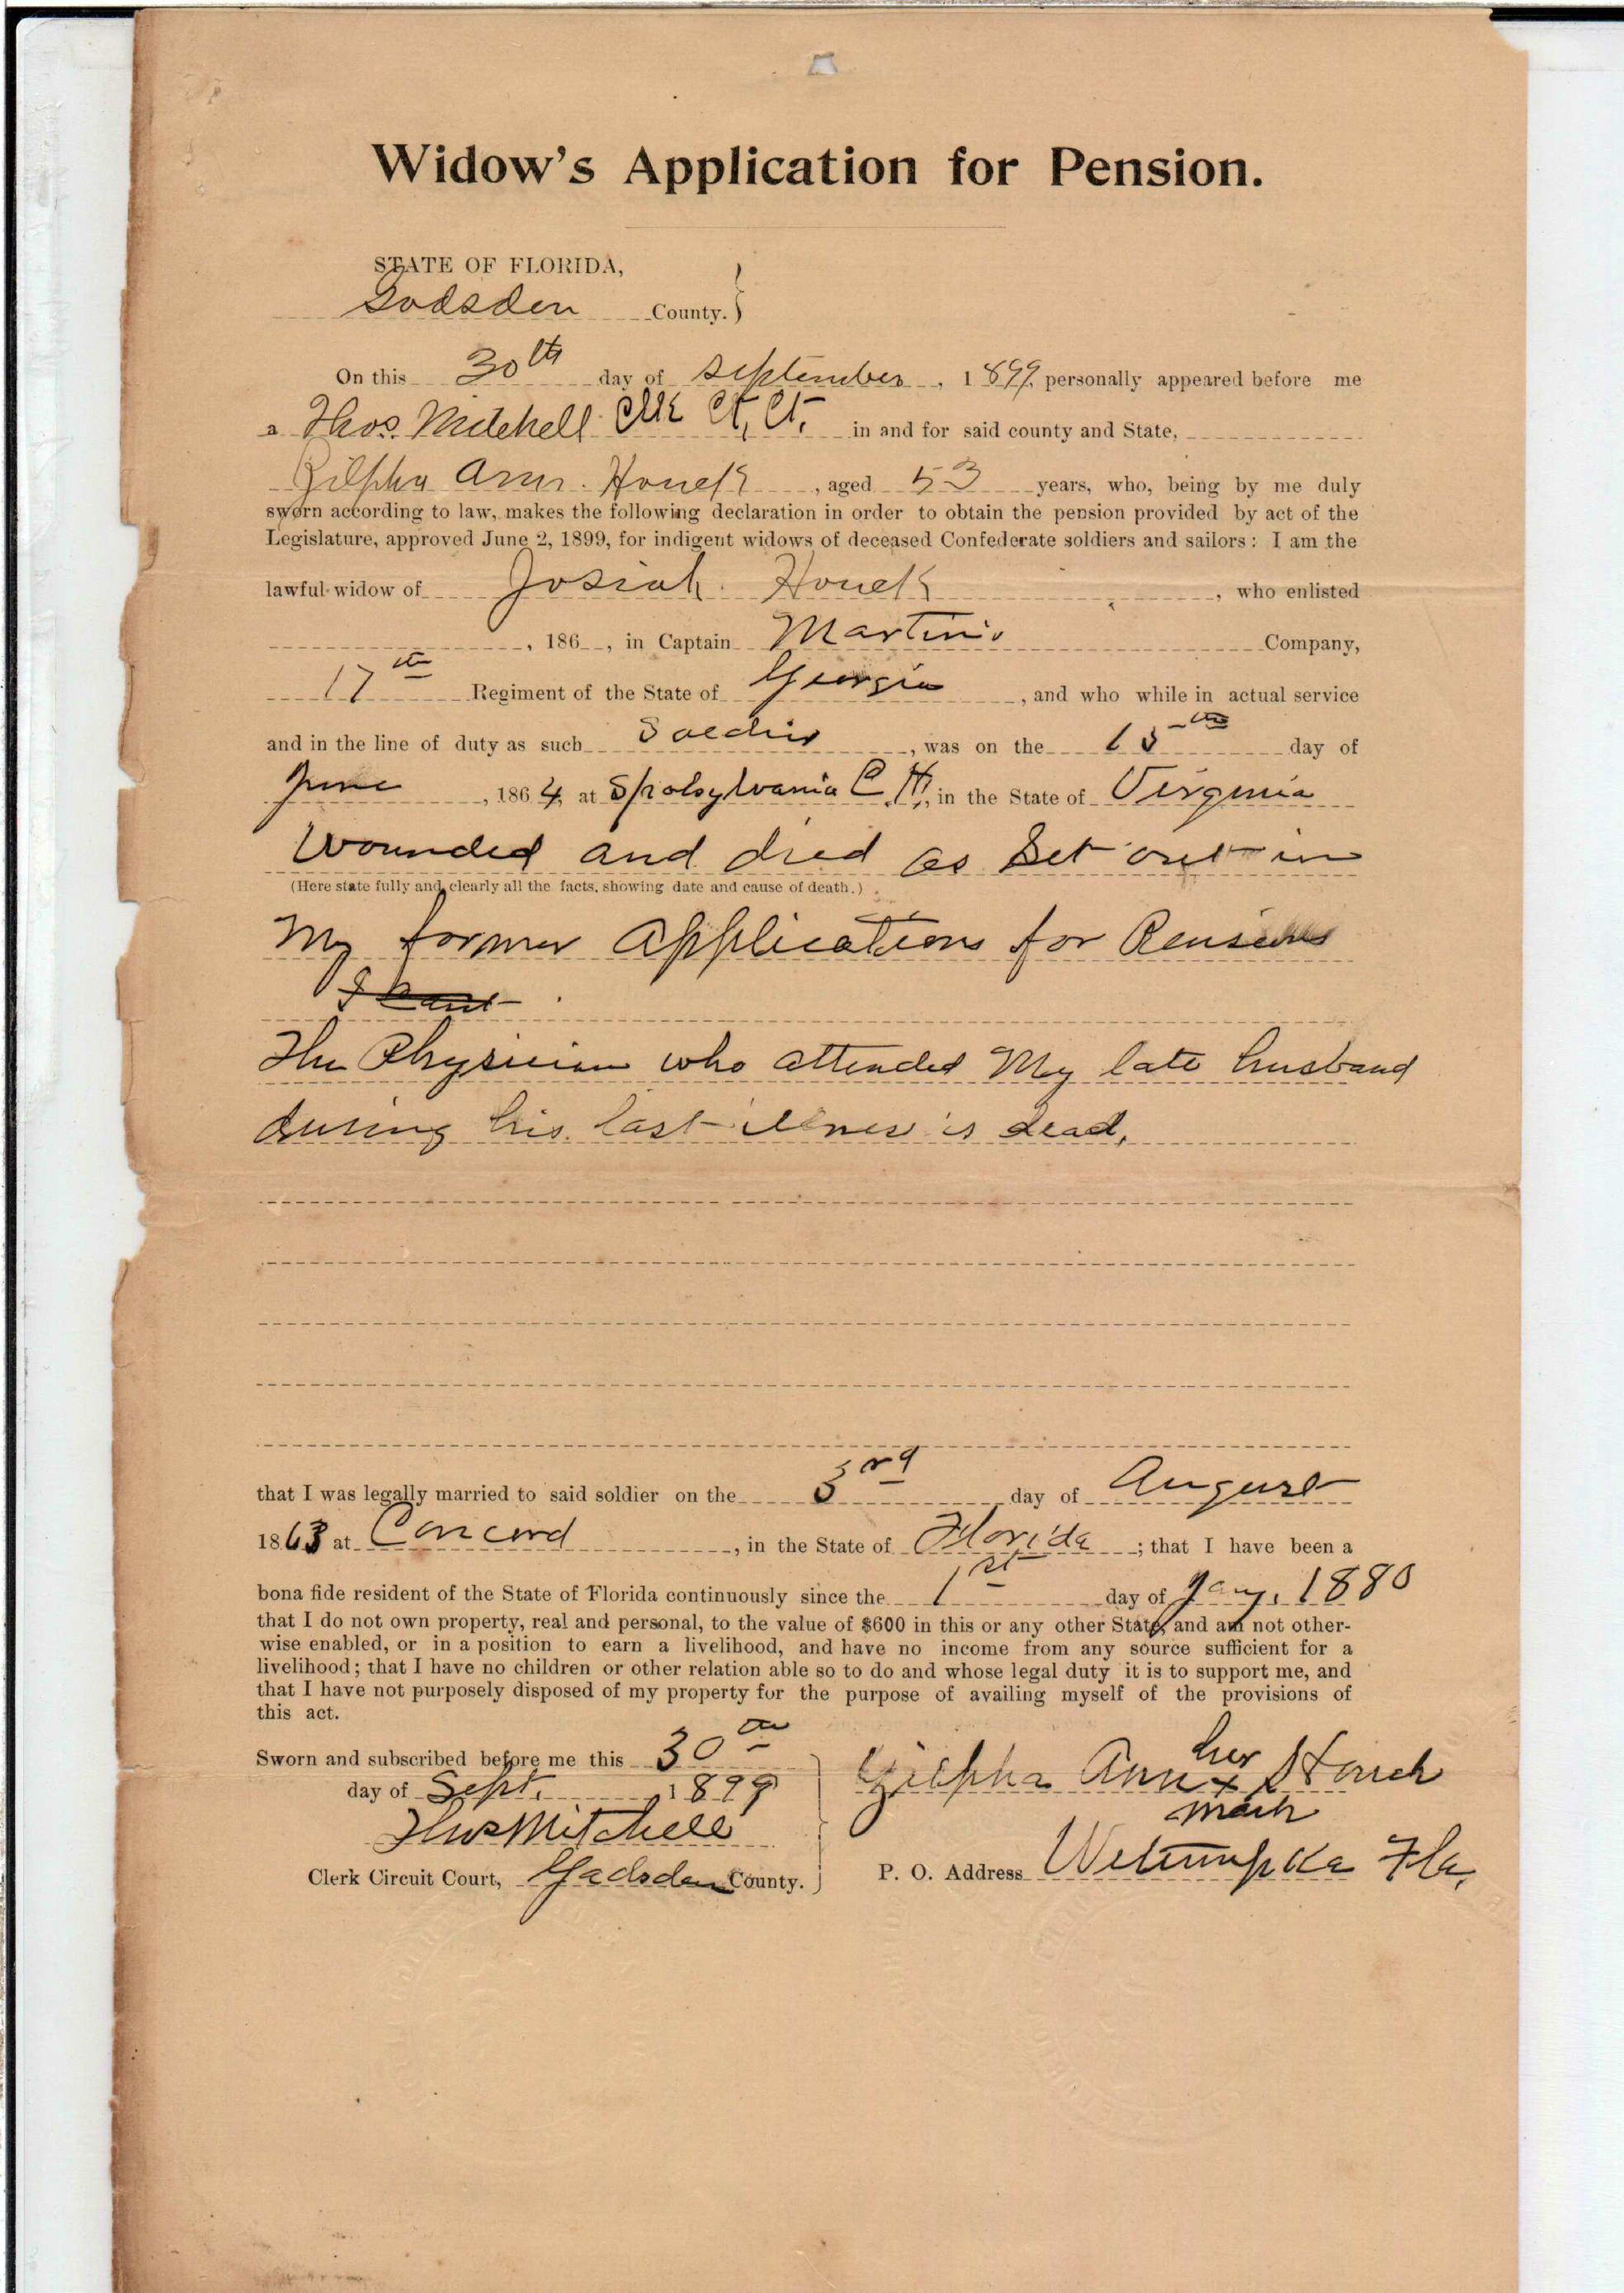 Widow's Application for Pension.
STATE OF FLORIDA,
Gadsden County.
On this 30th day of September, 1899, personally appeared before me
a Thos. Mitchell Clk Ct, Ct, in and for said county and State,
Zilpha Ann. Houck, aged 53 years, who, being by me duly
sworn according to law, makes the following declaration in order to obtain the pension provided by act of the
Legislature, approved June 2, 1899, for indigent widows of deceased Confederate soldiers and sailors: I am the
lawful widow of Josiah. Houck, who enlisted
, 186 , in Captain Martin's Company,
17th Regiment of the State of Georgia, and who while in actual service
and in the line of duty as such Soldier, was on the 15th day of
June, 1864, at Spotsylvania C.H., in the State of Virginia
Wounded and died as Set out in
(Here state fully and clearly all the facts, showing date and cause of death.)
My former Applications for Pensions
The Physician who attended My late husband
during his last illness is dead,
that I was legally married to said soldier on the 3rd day of August
1863 at Concord, in the State of Florida; that I have been a
bona fide resident of the State of Florida continuously since the 1st day of Jany. 1880
that I do not own property, real and personal, to the value of $600 in this or any other State, and am not other-
wise enabled, or in a position to earn a livelihood, and have no income from any source sufficient for a
livelihood; that I have no children or other relation able so to do and whose legal duty it is to support me, and
that I have not purposely disposed of my property for the purpose of availing myself of the provisions of
this act.
Sworn and subscribed before me this 30th
day of Sept. 1899
Thos Mitchell
Clerk Circuit Court, Gadsden County.
her
Zilpha Ann x Houck
mark
P. O. Address Wetumpka Fla,